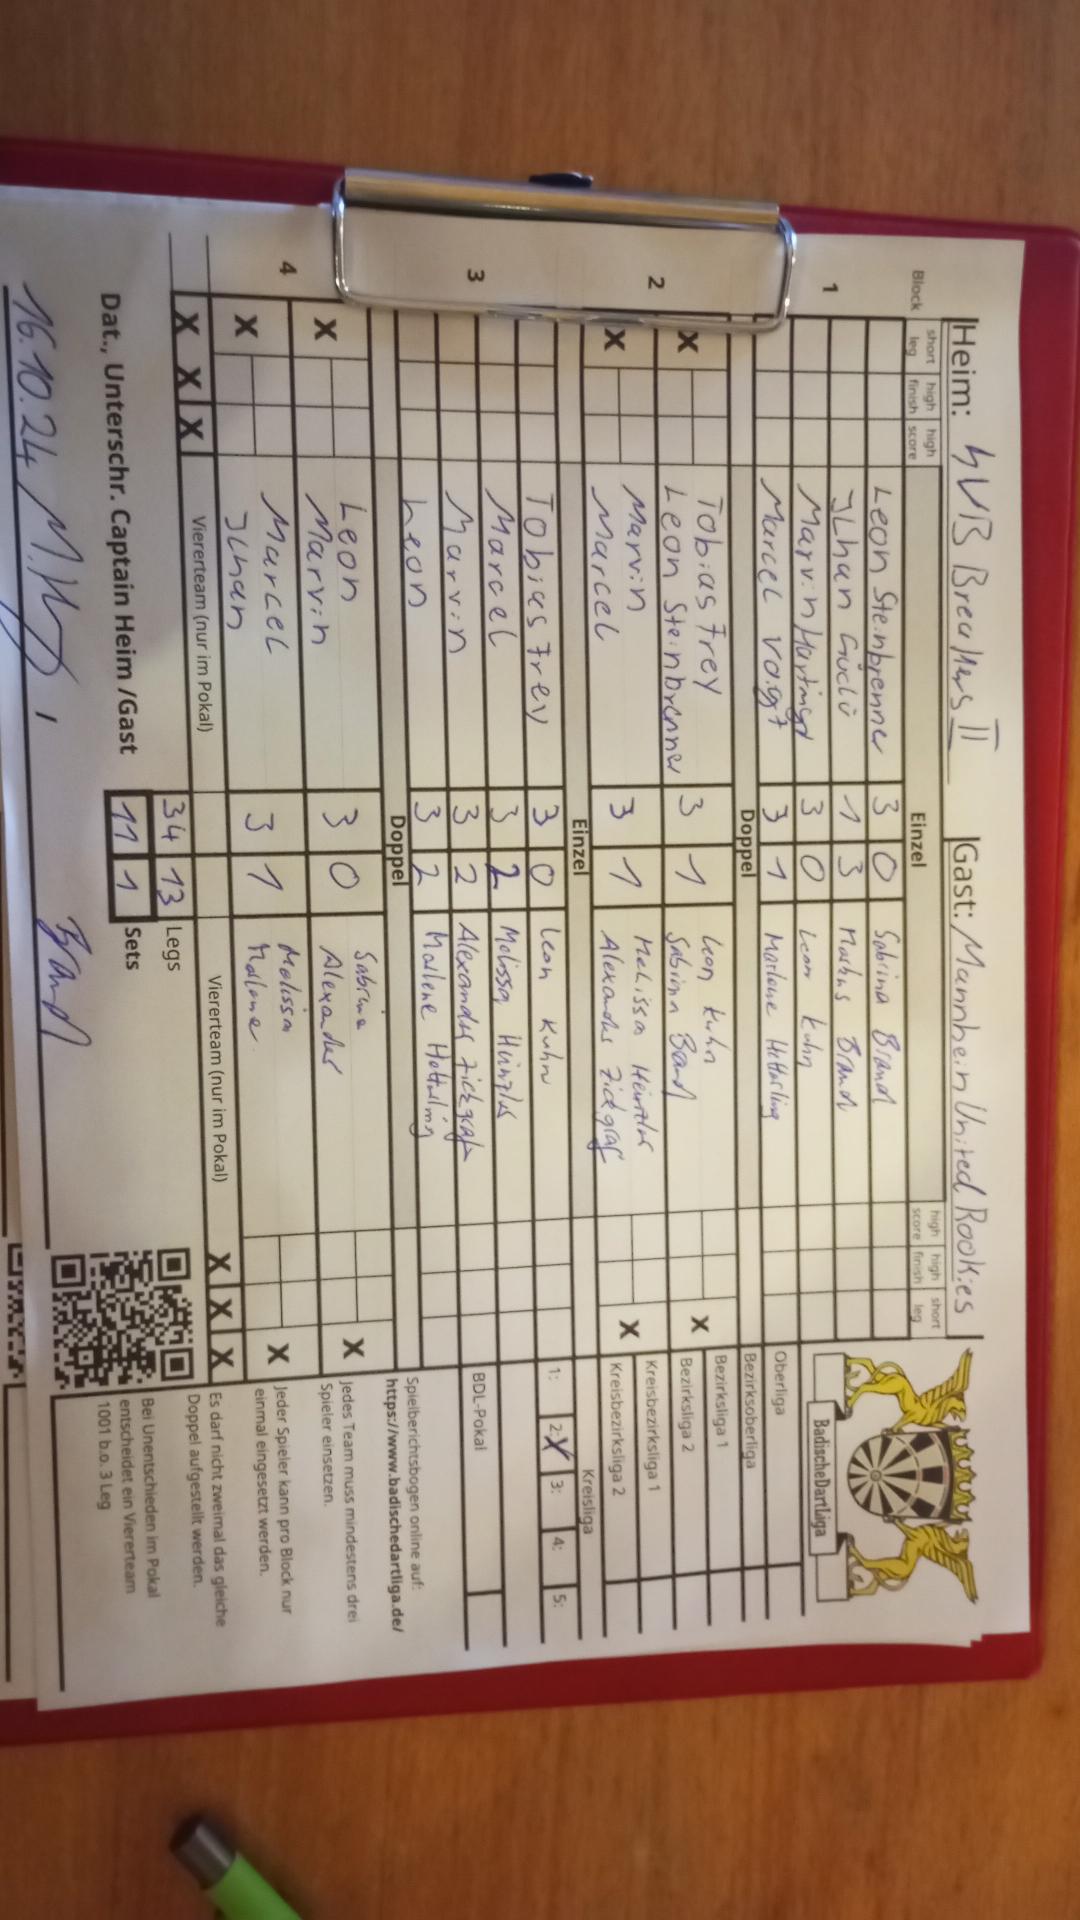 Heim: HVB Breakers II Gast: Mannheim United Rookies
Block short leg high finish high score Einzel high score high finish short leg
1 Leon Steinbrenner 3 0 Sabrina Brand
Ilhan Güclü 1 3 Markus Brand
Marvin 3 0 Leon Kuhn
Marcel Voigt 3 1 Marlene Hetterling
Doppel
2 Tobias Frey Leon Kuhn
X Leon Steinbrenner 3 1 Sabrina Brand X
Marvin Melissa Heinzler
X Marcel 3 1 Alexander Zickgraf X
Einzel
3 Tobias Frey 3 0 Leon Kuhn
Marcel 3 2 Melissa Heinzler
Marvin 3 2 Alexander Zickgraf
Leon 3 2 Marlene Hetterling
Doppel
4 Leon Sabrina
X Marvin 3 0 Alexander X
Marcel Melissa
X Ilhan 3 1 Marlene X
X X X Viererteam (nur im Pokal) Viererteam (nur im Pokal) X X X
34 13 Legs
Dat., Unterschr. Captain Heim /Gast 11 1 Sets
16.10.24 Brand
BadischeDartLiga
Oberliga
Bezirksoberliga
Bezirksliga 1
Bezirksliga 2
Kreisbezirksliga 1
Kreisbezirksliga 2
Kreisliga
1: 2: X 3: 4: 5:
BDL-Pokal
Spielberichtsbogen online auf:
https://www.badischedartliga.de/
Jedes Team muss mindestens drei
Spieler einsetzen.
Jeder Spieler kann pro Block nur
einmal eingesetzt werden.
Es darf nicht zweimal das gleiche
Doppel aufgestellt werden.
Bei Unentschieden im Pokal
entscheidet ein Viererteam
1001 b.o. 3 Leg